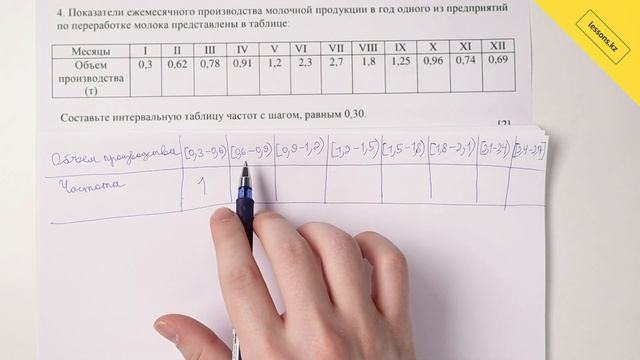 4. Показатели ежемесячного производства молочной продукции в год одного из предприятий
по переработке молока представлены в таблице:
Месяцы I II III IV V VI VII VIII IX X XI XII
Объем производства (т) 0,3 0,62 0,78 0,91 1,2 2,3 2,7 1,8 1,25 0,96 0,74 0,69
Составьте интервальную таблицу частот с шагом, равным 0,30.
[2]
Объем производства [0,3-0,6) [0,6-0,9) [0,9-1,2) [1,2-1,5) [1,5-1,8) [1,8-2,1) [2,1-2,4) [2,4-2,7
Частота 1
lessons.kz